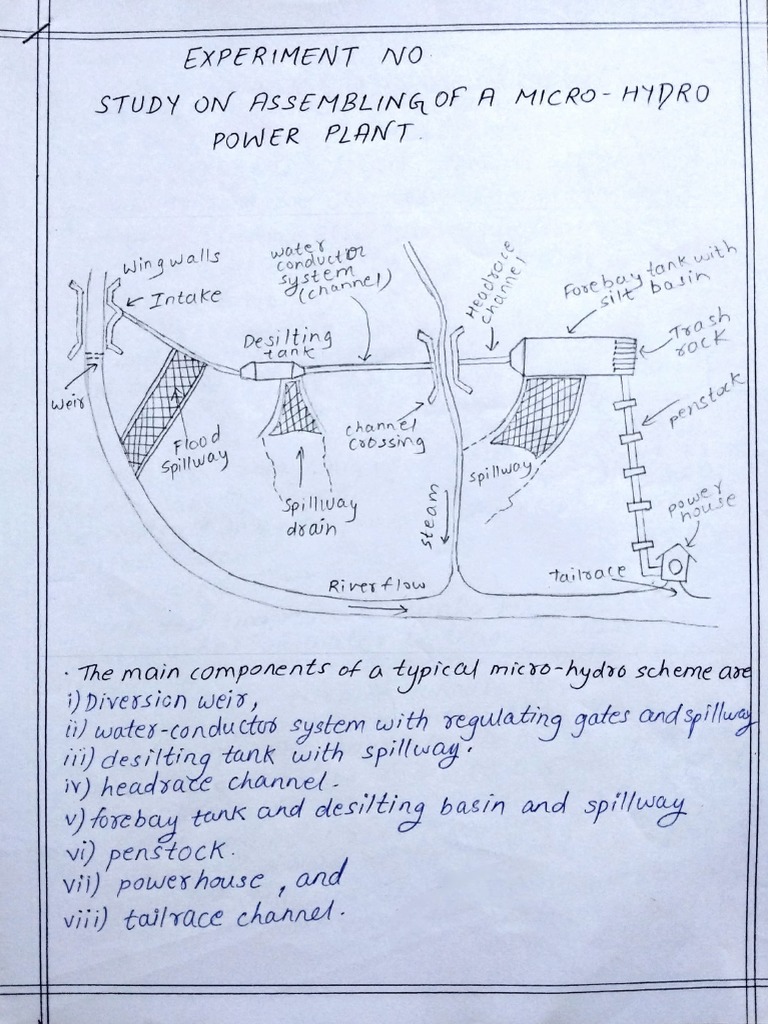 EXPERIMENT NO.
STUDY ON ASSEMBLING OF A MICRO-HYDRO
POWER PLANT.
Wingwalls
Intake
water
conductor
system
(channel)
Headrace
channel
Forebay tank with
silt basin
Desilting
tank
Trash
rack
weir
Flood
Spillway
channel
crossing
penstock
Spillway
Spillway
drain
steam
power
house
Riverflow
tailrace
. The main components of a typical micro-hydro scheme are
i) Diversion weir,
ii) water-conductor system with regulating gates and spillway
iii) desilting tank with spillway.
iv) headrace channel.
v) forebay tank and desilting basin and spillway
vi) penstock.
vii) powerhouse, and
viii) tailrace channel.